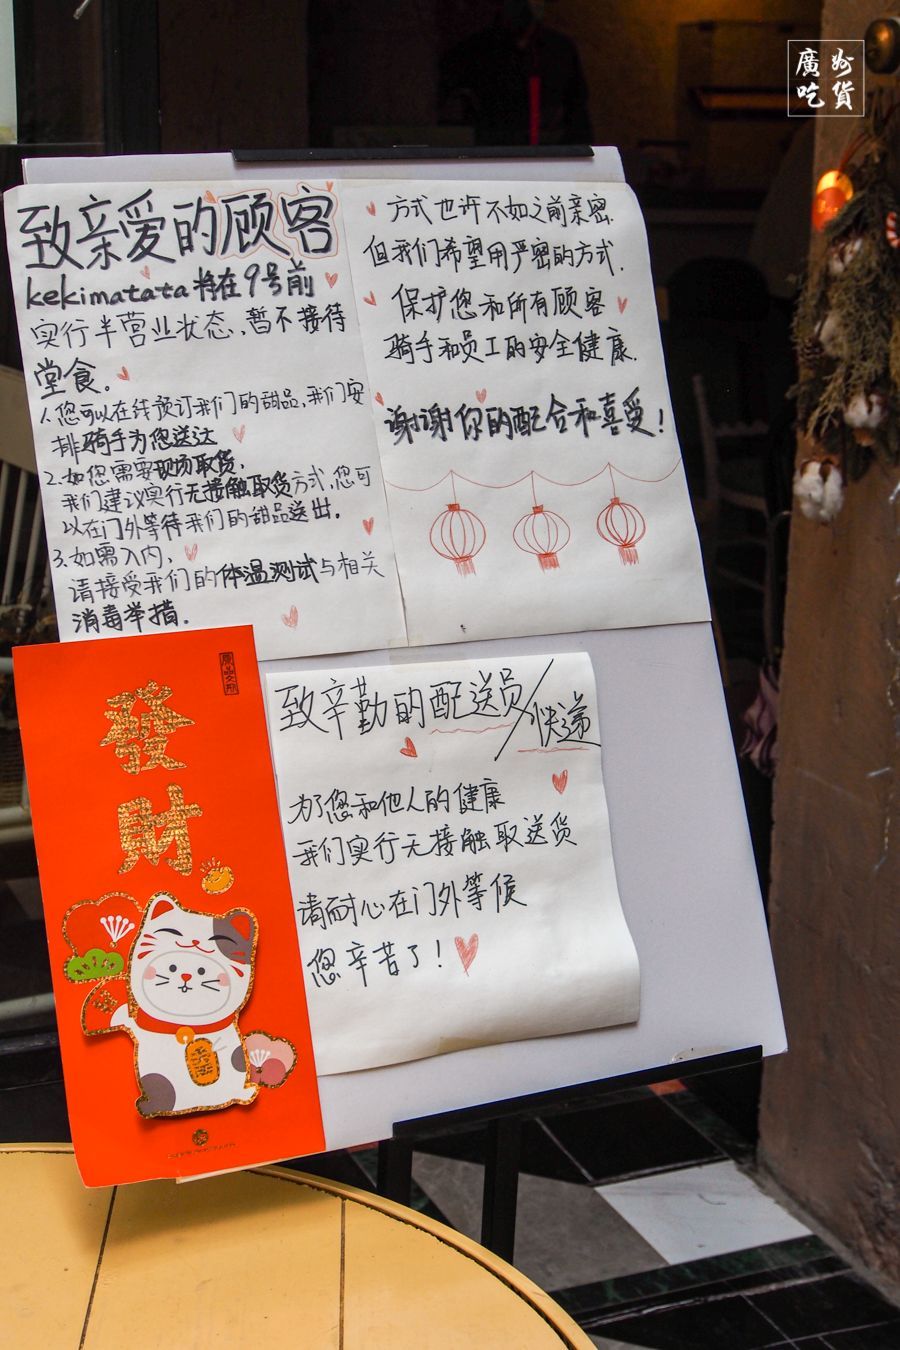 廣州
吃貨
致亲爱的顾客
kekimatata 将在9号前
实行半营业状态,暂不接待
堂食.
1.您可以在线预订我们的甜品,我们安
排骑手为您送达
2.如您需要现场取货,
我们建议实行无接触取货方式,您可
以在门外等待我们的甜品送出.
3.如需入内,
请接受我们的体温测试与相关
消毒举措.
方式也许不如之前亲密.
但我们希望用严密的方式.
保护您和所有顾客
骑手和员工的安全健康.
谢谢你的配合和喜受!
發
財
致辛勤的配送员/快递
为了您和他人的健康
我们实行无接触取送货
请耐心在门外等候
您辛苦了!